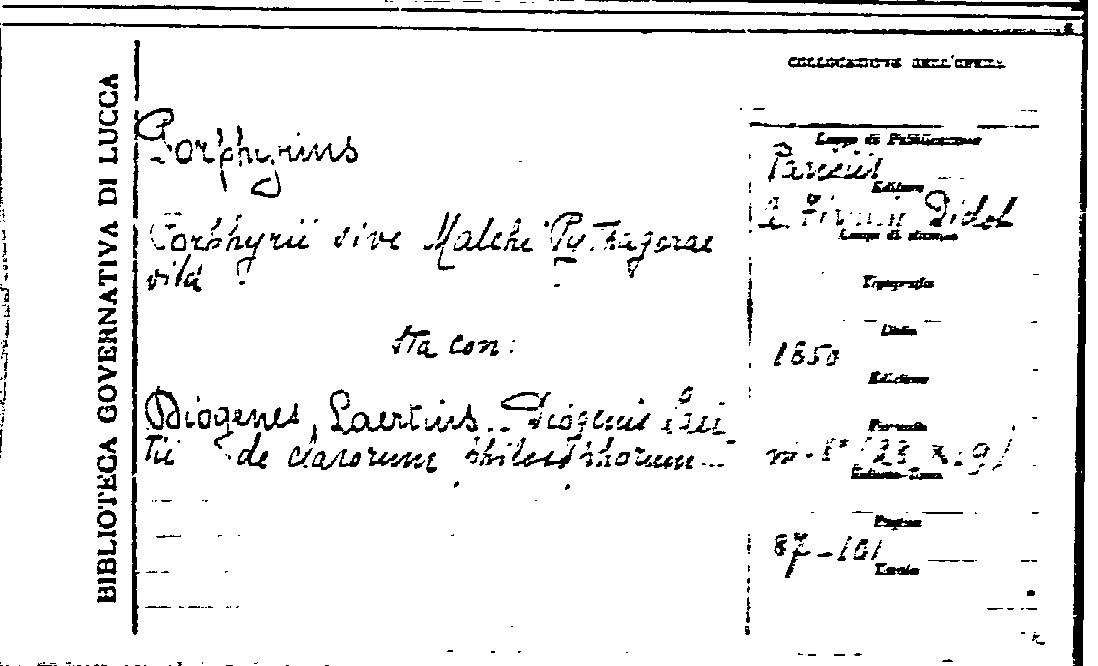 BIBLIOTECA GOVERNATIVA DI LUCCA
COLLOCAZIONE DELL'OPERA
Porphyrius
Porphyrii sive Malchi Pythagorae
vita
sta con:
Diogenes, Laertius.. Diogenis Laer
tii de clarorum philosophorum...
Luogo di Pubblicazione
Parisiis
Editore
A. Firmin Didot
Luogo di stampa
Tipografia
Data
1850
Edizione
Formato
in-8° (25 x 9)
Pagine
87-101